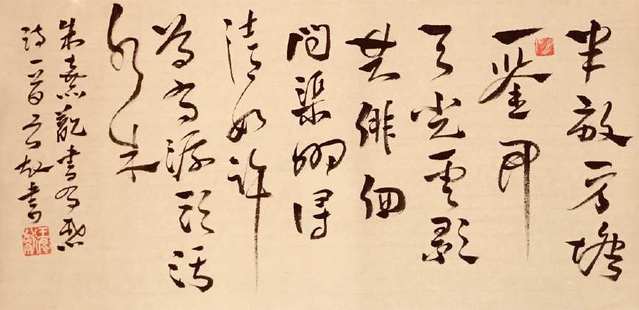 半畝方塘
一鑒開
天光雲影
共徘徊
問渠那得
清如許
為有源頭活
水來
朱熹觀書有感
詩一首 書